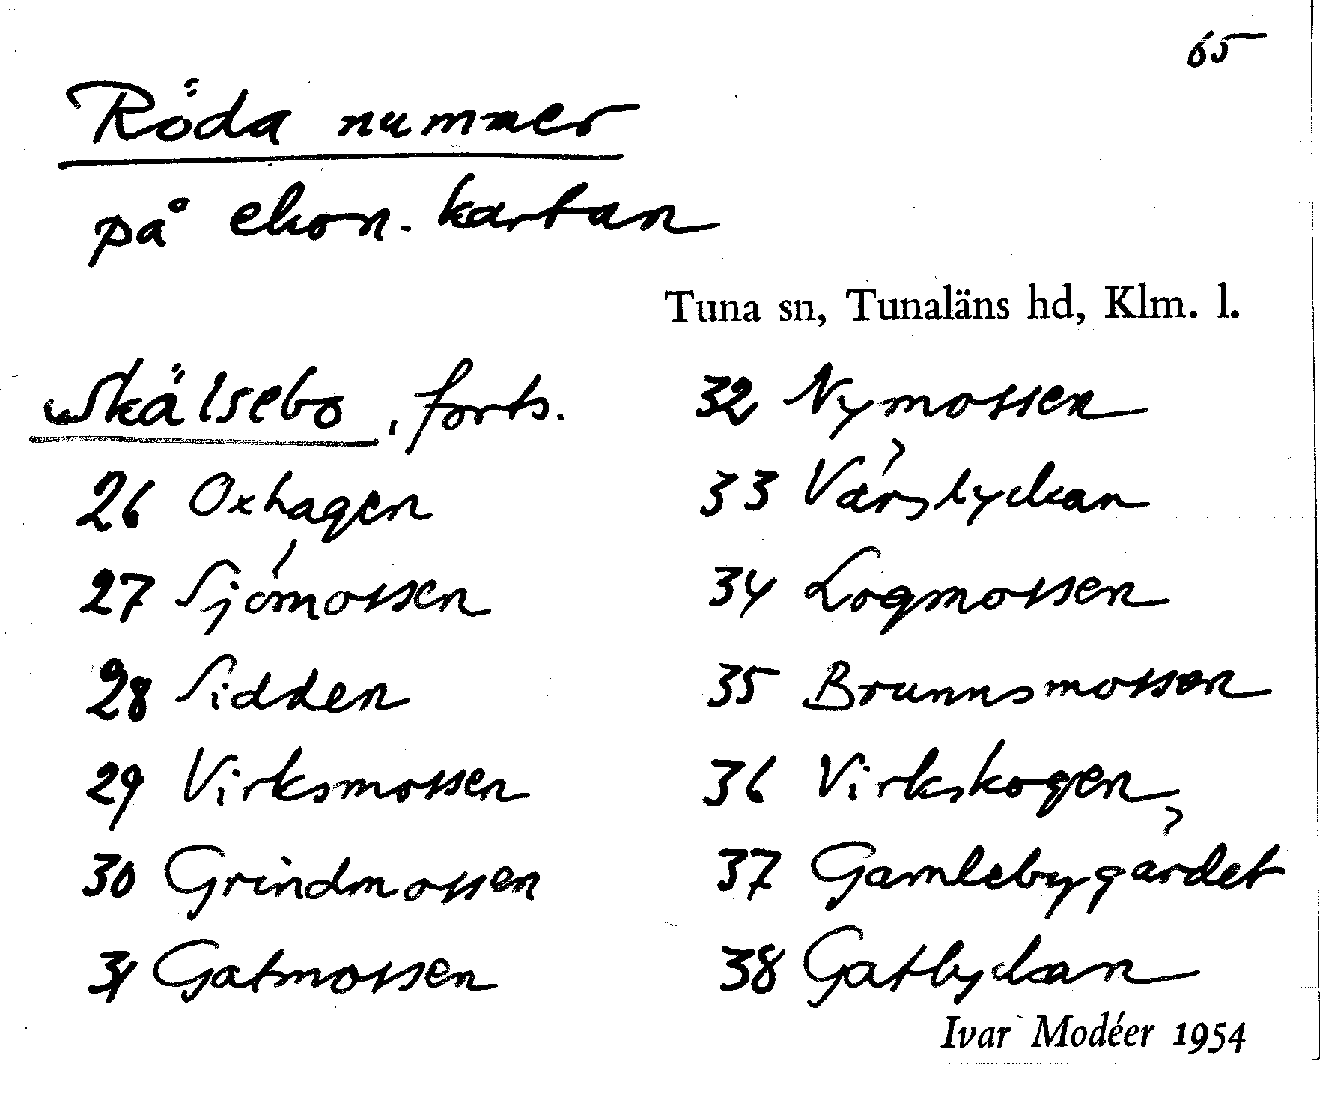 65
Röda nummer
på ekon. kartan
Tuna sn, Tunaläns hd, Klm. l.
Skälsebo, forts.
26 Oxhagen
27 Sjömossen
28 Sidden
29 Virksmossen
30 Grindmossen
31 Gatmossen
32 Nymossen
33 Vårslyckan
34 Logmossen
35 Brunnsmossen
36 Virkskogen
37 Gamlebygärdet
38 Gatlyckan
Ivar Modéer 1954